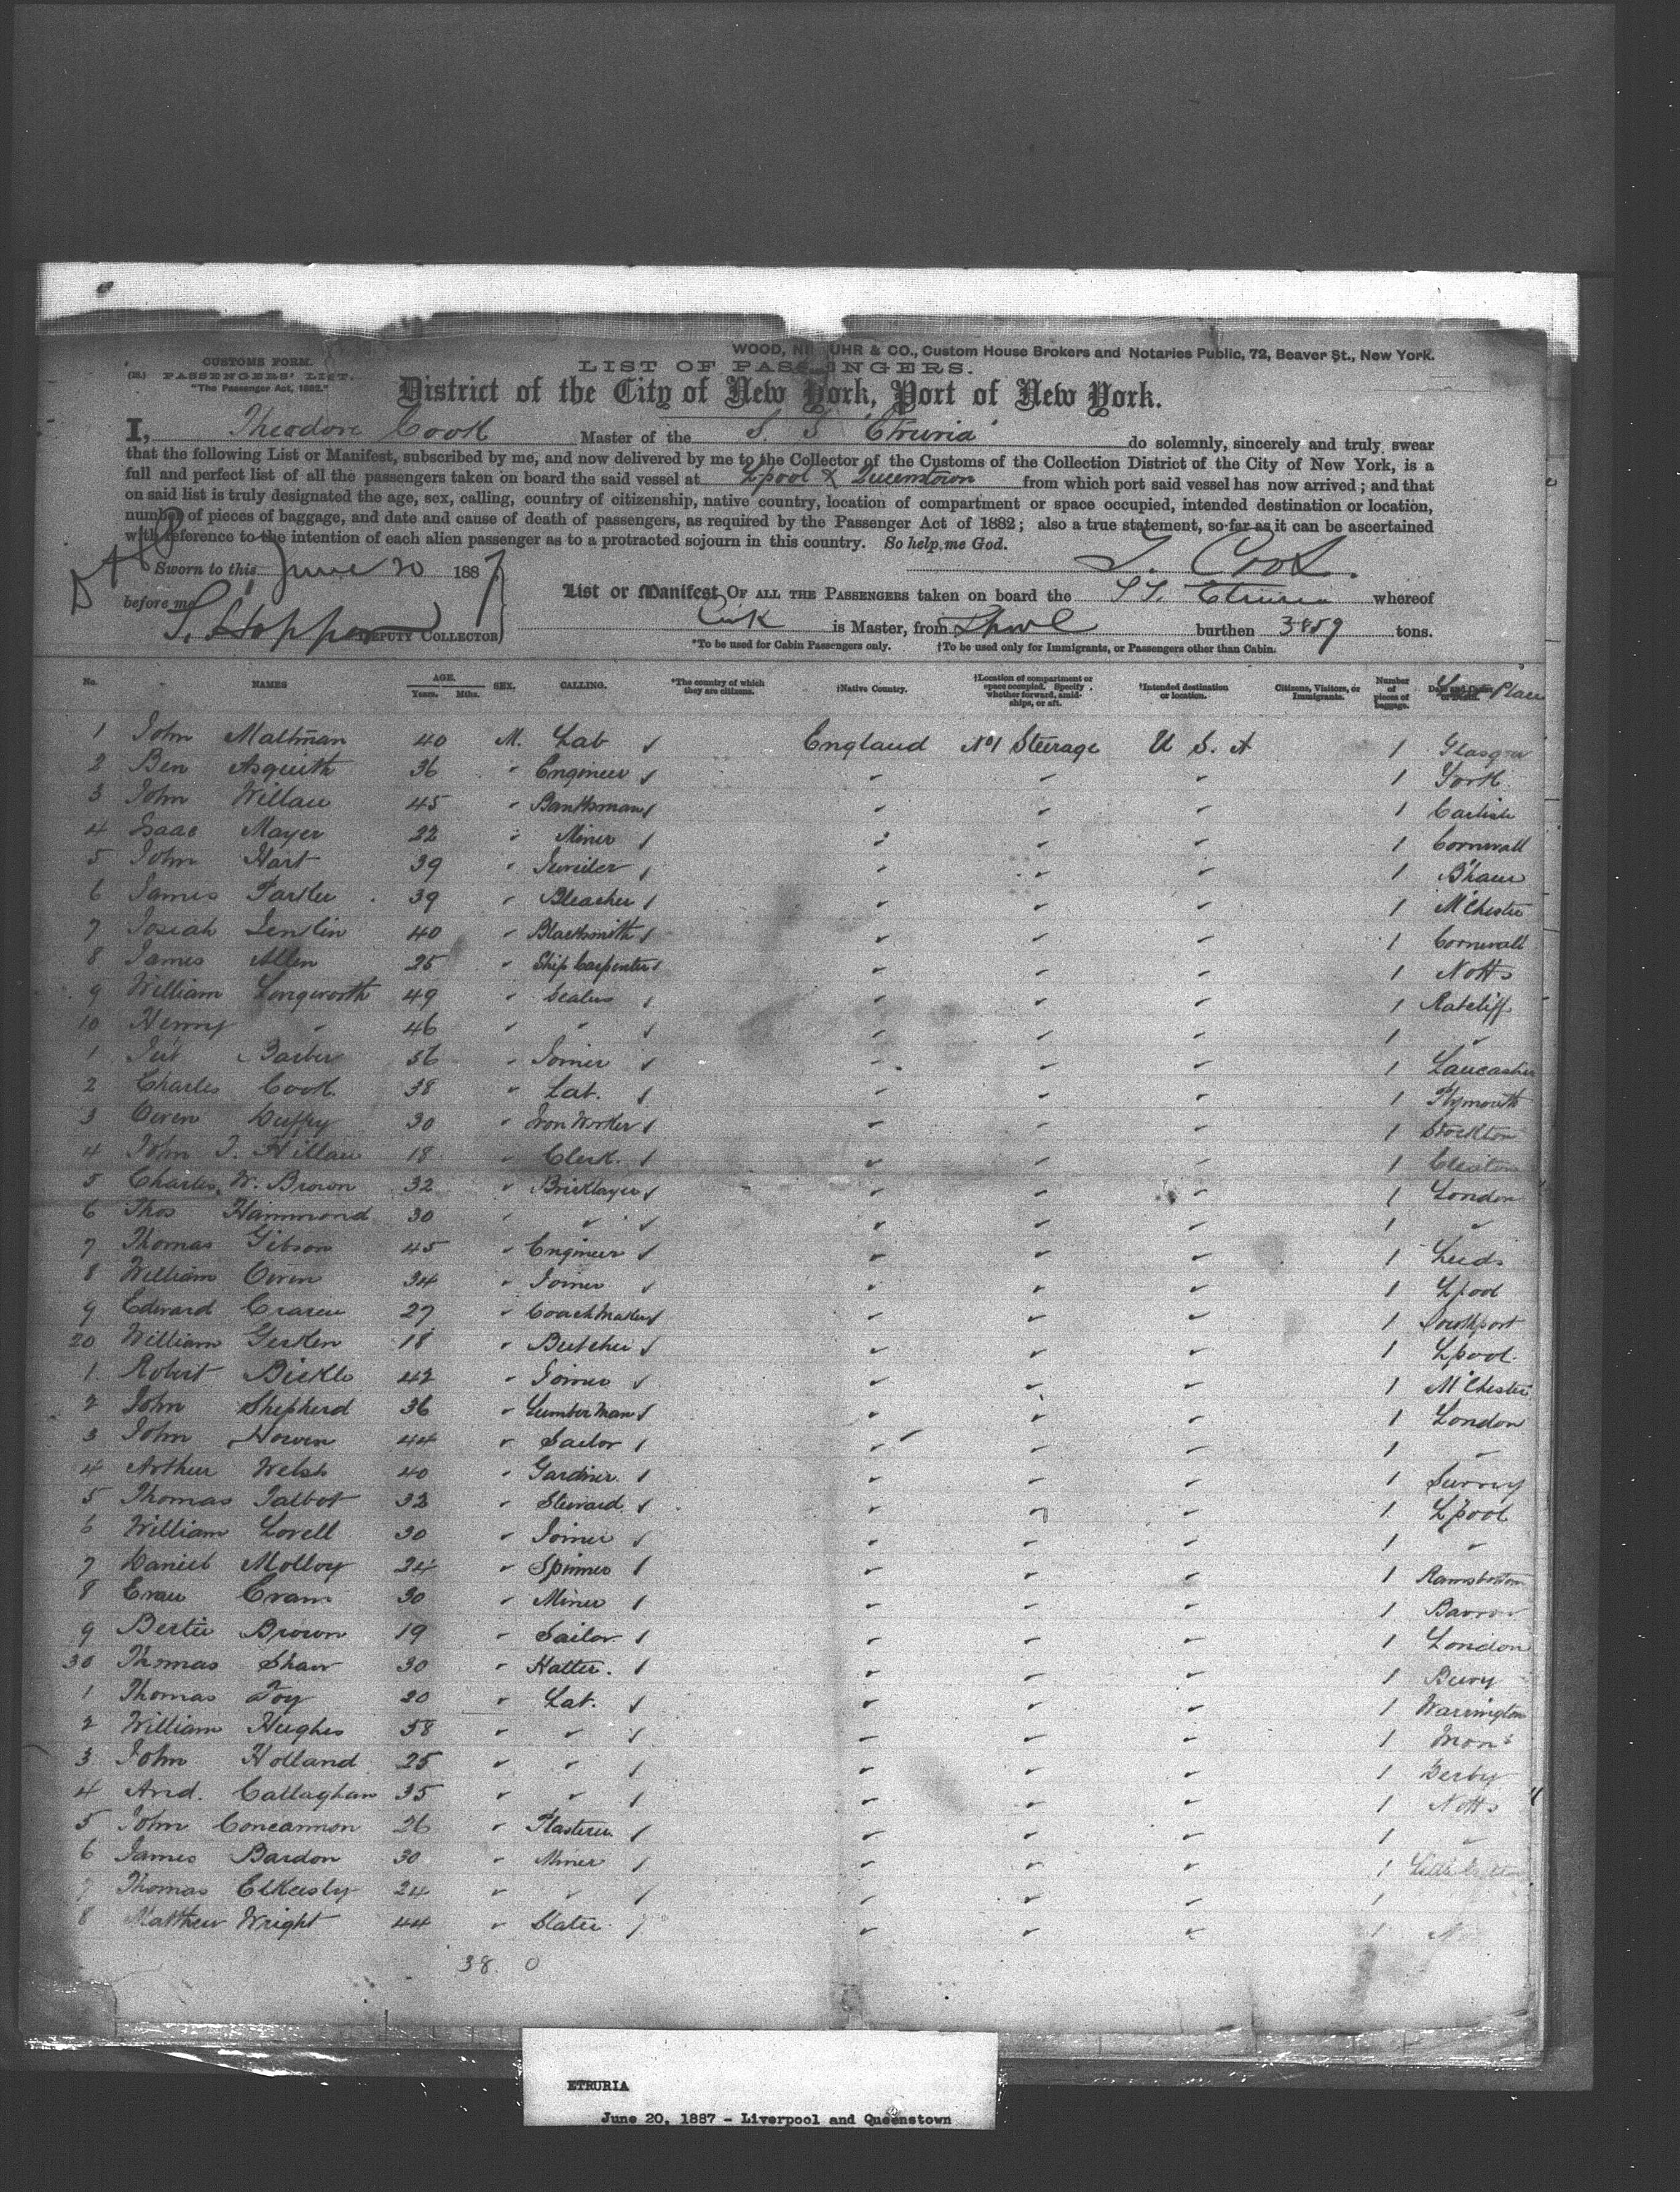 WOOD, NI UHR & CO., Custom House Brokers and Notaries Public, 72, Beaver St., New York.
CUSTOMS FORM.
PASSENGERS' LIST.
"The Passenger Act, 1882."
LIST OF PASSENGERS.
District of the City of New York, Port of New York.
I, Theodore Cook Master of the S. S. Etruria do solemnly, sincerely and truly swear
that the following List or Manifest, subscribed by me, and now delivered by me to the Collector of the Customs of the Collection District of the City of New York, is a
full and perfect list of all the passengers taken on board the said vessel at L'pool & Queenstown from which port said vessel has now arrived; and that
on said list is truly designated the age, sex, calling, country of citizenship, native country, location of compartment or space occupied, intended destination or location,
number of pieces of baggage, and date and cause of death of passengers, as required by the Passenger Act of 1882; also a true statement, so far as it can be ascertained
with reference to the intention of each alien passenger as to a protracted sojourn in this country. So help me God.
T. Cook.
Sworn to this June 20 1887
before me
DEPUTY COLLECTOR
List or Manifest OF ALL THE PASSENGERS taken on board the SS. Etruria whereof
Cook is Master, from L'pool burthen 3859 tons.
*To be used for Cabin Passengers only. †To be used only for Immigrants, or Passengers other than Cabin.
No. NAMES AGE. Years. Mths. SEX. CALLING. *The country of which they are citizens. †Native Country. †Location of compartment or space occupied. Specify whether forward, amidships, or aft. †Intended destination or location. Citizens, Visitors, or Immigrants. Number of pieces of baggage. Place
1 John Maltman 40 M. Lab England No 1 Steerage U. S. A 1 Glasgow
2 Ben Asquith 36 " Engineer " " " 1 York
3 John 45 " Banksman " " " 1 Carlisle
4 Isaac Mayer 22 " Miner " " " 1 Cornwall
5 John Hart 39 " Jeweller " " " 1 B'ham
6 James 39 " Bleacher " " " 1 M'Chester
7 Josiah 40 " Blacksmith " " " 1 Cornwall
8 James Allen 25 " Ship Carpenter " " " 1 Notts
9 William Longworth 49 " " " " 1 Ratcliff
10 Henry " 46 " " " " " 1 "
1 Barber 36 " Joiner " " " 1 Lancashire
2 Charles Cook 38 " Lab. " " " 1 Plymouth
3 Owen Duffy 30 " Iron Worker " " " 1 Stockton
4 John 18 " Clerk. " " " 1
5 Charles W. Brown 32 " Bricklayer " " " 1 London
6 Thos Hammond 30 " " " " " 1 "
7 Thomas Gibson 45 " Engineer " " " 1 Leeds
8 William Owen 34 " Joiner " " " 1 L'pool
9 Edward 27 " Coach Maker " " " 1 Southport
20 William 18 " Butcher " " " 1 L'pool.
1 Robert Bickle 42 " Joiner " " " 1 M'Chester
2 John Shepherd 36 " Lumber Man " " " 1 London
3 John 44 " Sailor " " " 1 "
4 Arthur Welsh 40 " Gardiner. " " " 1 Surrey
5 Thomas Talbot 32 " Steward. " " " 1 L'pool
6 William Lovell 30 " Joiner " " " 1 "
7 Daniel Molloy 24 " Spinner " " " 1 Ramsbottom
8 Evan Evans 30 " Miner " " " 1 Barrow
9 Bertie Brown 19 " Sailor " " " 1 London
30 Thomas Shaw 30 " Hatter. " " " 1 Bury
1 Thomas Foy 20 " Lab. " " " 1 Warrington
2 William Hughes 58 " " " " " 1
3 John Holland 25 " " " " " 1 Derby
4 And. Callaghan 35 " " " " " 1 Notts
5 John Concannon 26 " Plasterer " " " 1 "
6 James Bardon 30 " Miner " " " 1
7 Thomas 24 " " " " " 1
8 Matthew Wright 44 " Slater " " " 1
38. 0
ETRURIA
June 20, 1887 - Liverpool and Queenstown